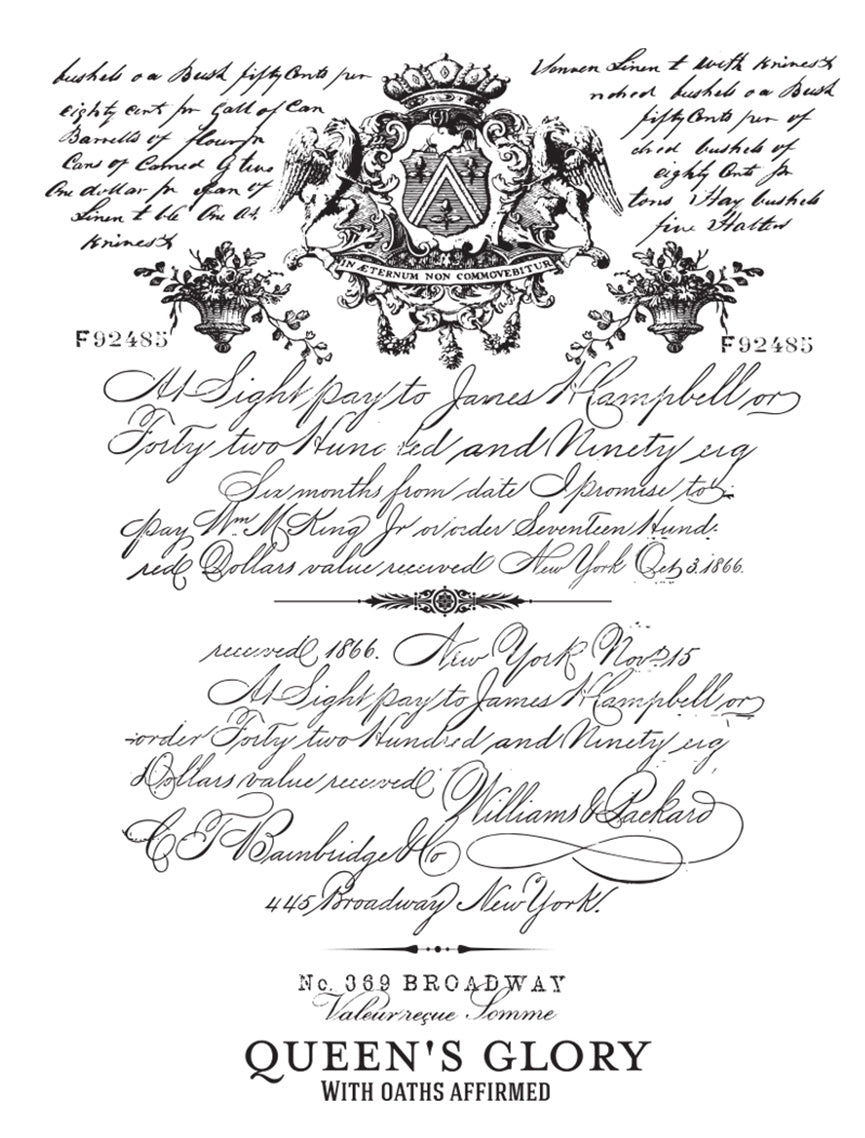 bushels oa Bush fifty Cents per
eighty cent pr Gall of Can
Barrells of flour pr
Cans of Carned G
One dollar pr of
Linen t ble One At
knines t
Linen t with knines t
bushels oa Bush
fifty Cents per of
dred bushels of
eighty Cents pr
tons Hay bushels
five Halters
IN ÆTERNUM NON COMMOVEBITUR
F92485
F92485
At Sight pay to James H Campbell or
Forty two Hund ed and Ninety eig
Six months from date I promise to
pay Wm M King Jr or order Seventeen Hund
red Dollars value received New York Oct 3. 1866.
received 1866. New York Nov. 15
At Sight pay to James H Campbell or
order Forty two Hundred and Ninety eig
Dollars value received
Williams & Packard
C T Bambridge & Co
445 Broadway New York.
No. 369 BROADWAY
Valeur reçue Somme
QUEEN'S GLORY
WITH OATHS AFFIRMED